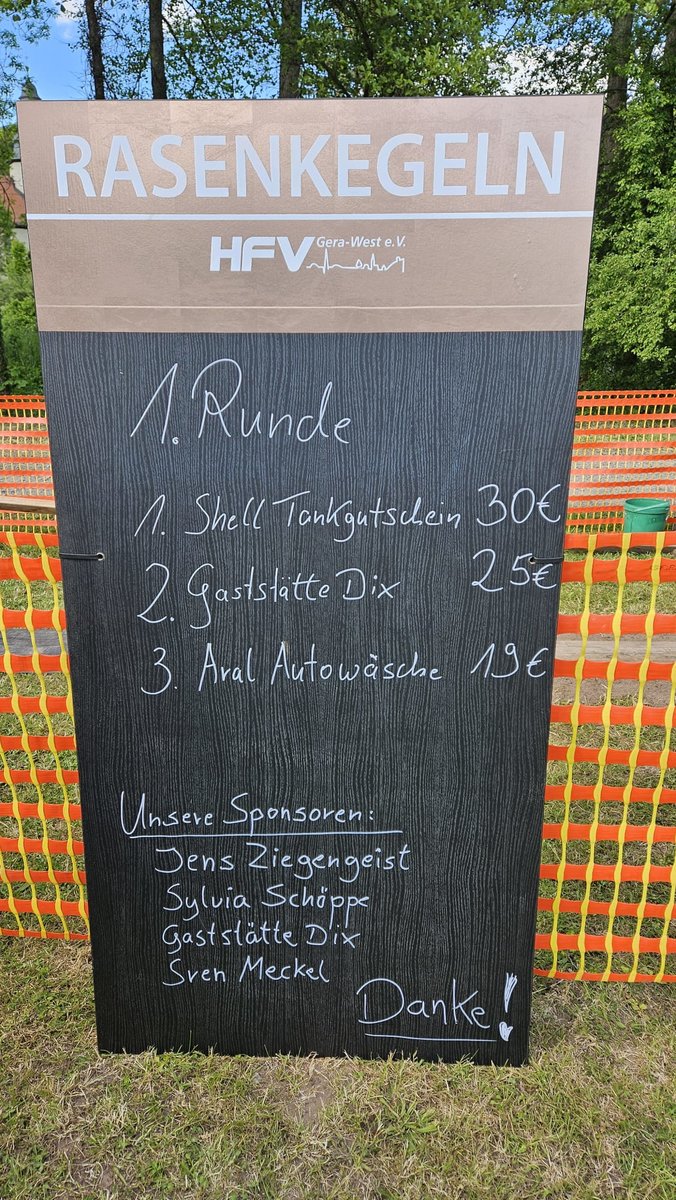 RASENKEGELN
HFV Gera-West e.V.
1. Runde
1. Shell Tankgutschein 30€
2. Gaststätte Dix 25€
3. Aral Autowäsche 19€
Unsere Sponsoren:
Jens Ziegengeist
Sylvia Schöppe
Gaststätte Dix
Sven Meckel
Danke!